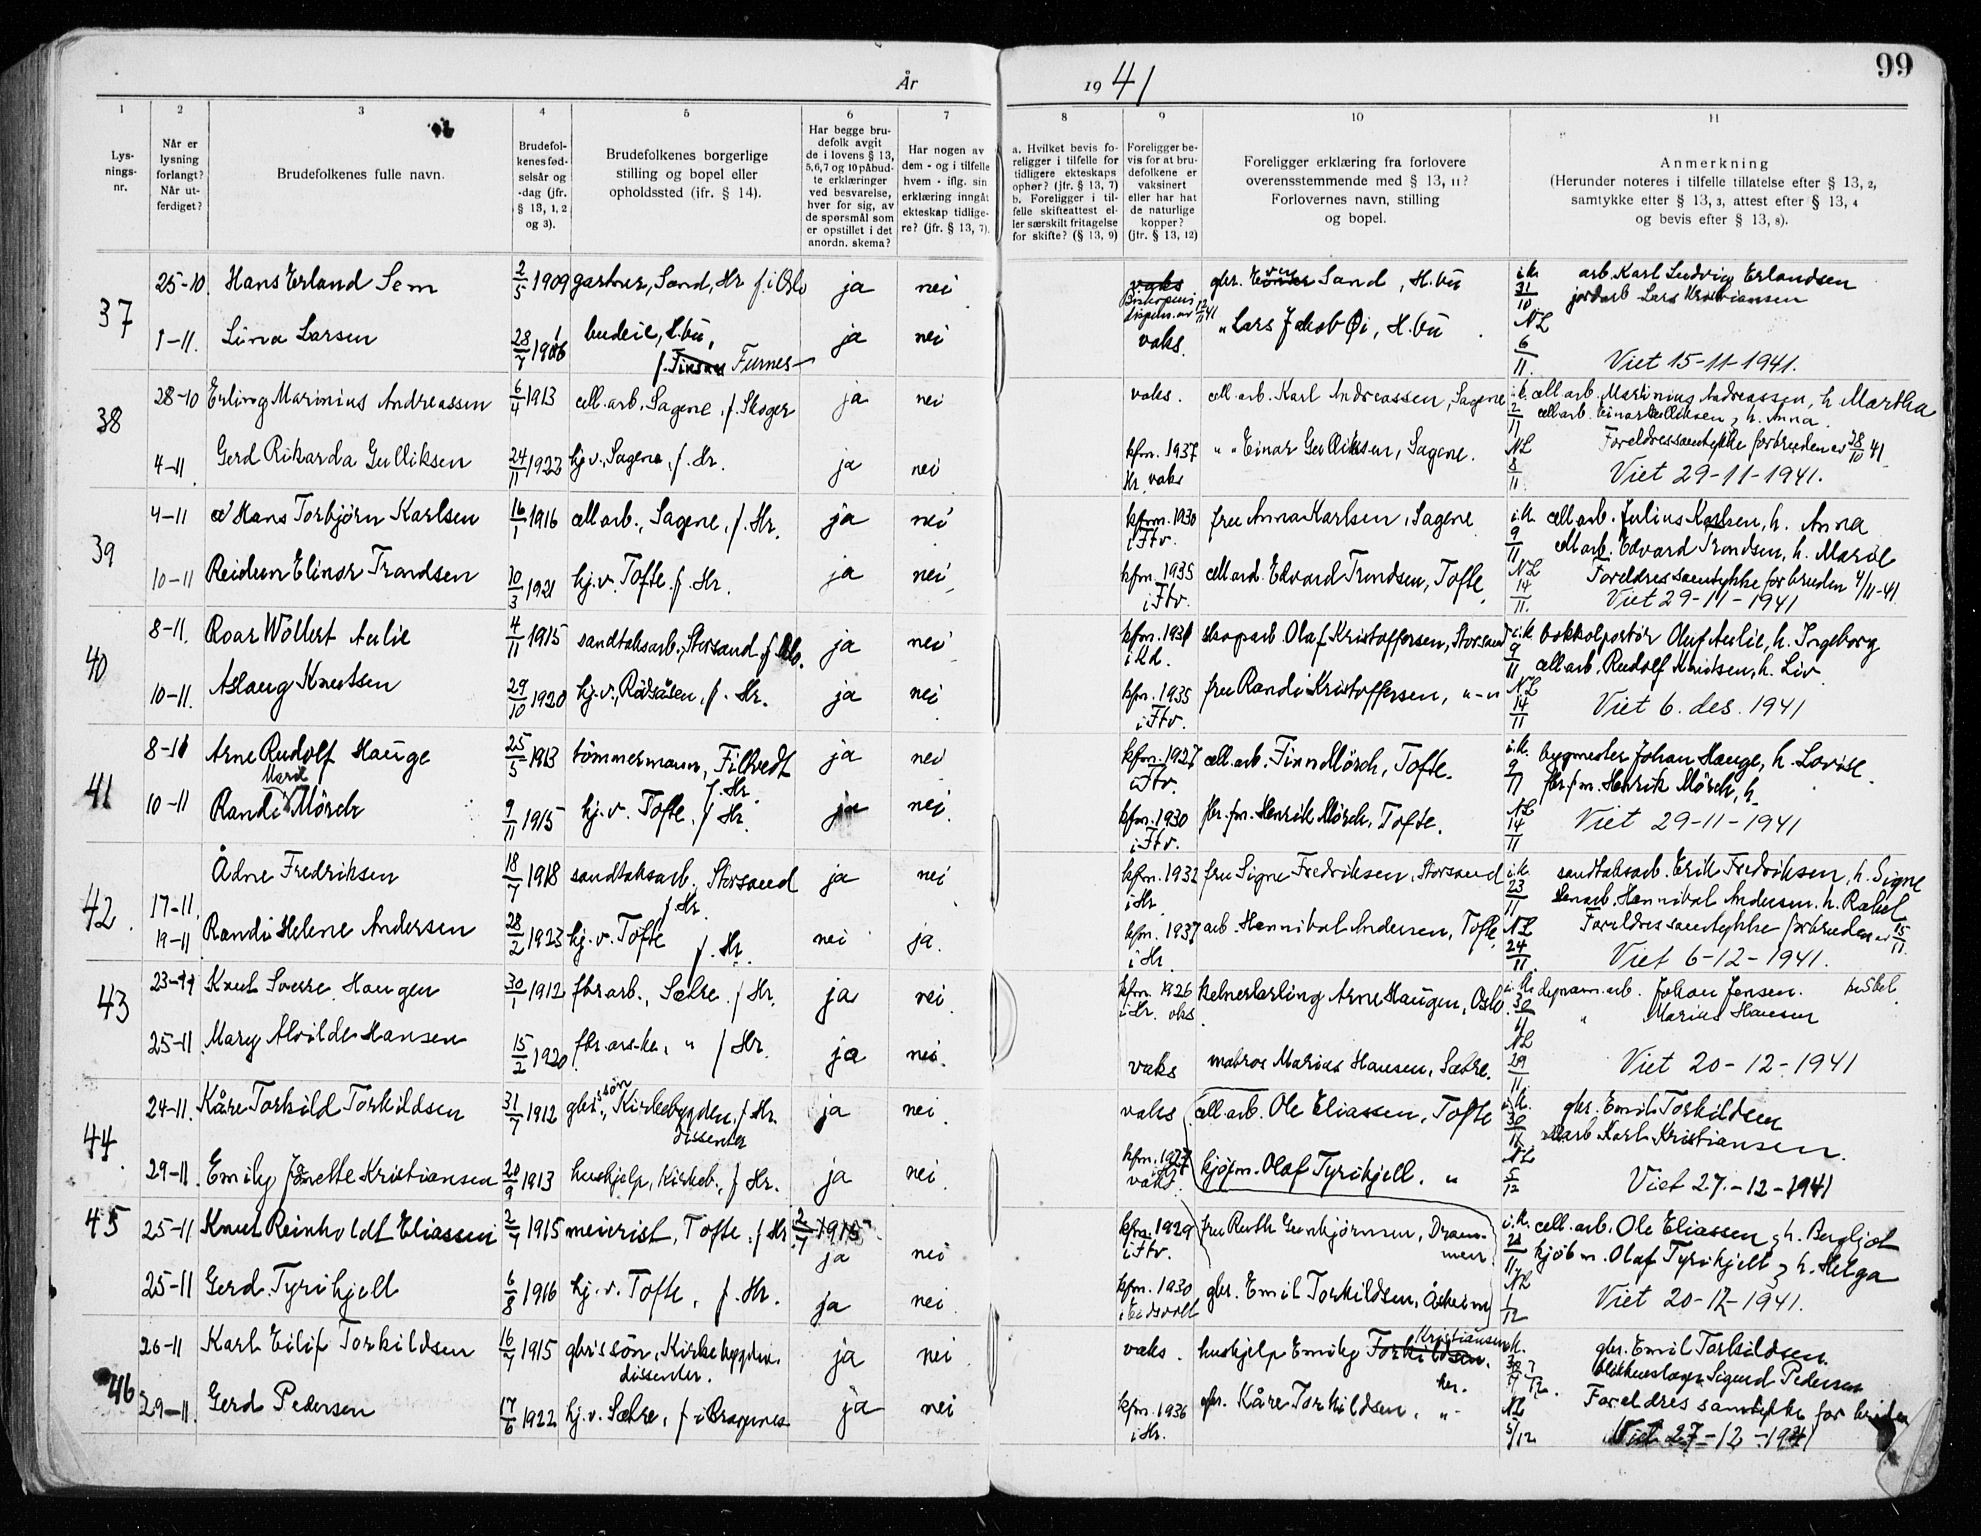 99
År 1941
1 2 3 4 5 6 7 8 9 10 11
Lysningsnr.
Når er lysning forlangt? Når utferdiget?
Brudefolkenes fulle navn.
Brudefolkenes fødselsår og -dag (jfr. § 13, 1, 2 og 3).
Brudefolkenes borgerlige stilling og bopel eller opholdssted (ifr. § 14).
Har begge brudefolk avgit de i lovens § 13, 5, 6, 7 og 10 påbudte erklæringer ved besvarelse, hver for sig, av de spørsmål som er opstillet i det anordn. skema?
Har nogen av dem - og i tilfelle hvem - iflg. sin erklæring inngått ekteskap tidligere? (jfr. § 13, 7).
a. Hvilket bevis foreligger i tilfelle for tidligere ekteskaps ophør? (jfr. § 13, 7) b. Foreligger i tilfelle skifteattest eller særskilt fritagelse for skifte? (§ 13, 9)
Foreligger bevis for at brudefolkene er vaksinert eller har hat de naturlige kopper? (jfr. § 13, 12)
Foreligger erklæring fra forlovere overensstemmende med § 13, 11? Forlovernes navn, stilling og bopel.
Anmerkning (Herunder noteres i tilfelle tillatelse efter § 13, 2, samtykke efter § 13, 3, attest efter § 13, 4 og bevis efter § 13, 8).
37 25-10 Hans Erland Sem 2/5 1909 gartner, Sand, Hr f. i Oslo ja nei vaks gbr. Sand, H.bu i.k. 31/10 arb. Karl Ludvig Erlandsen
jordarb Lars Kristiansen
1-11. Lina Larsen 28/7 1906 budeie, H.bu, f. Furnes ja nei vaks. " Lars Jakob Øi, H.bu NL 6/11. Viet 15-11-1941.
38 28-10 Erling Marinius Andreassen 6/4 1913 cell. arb. Sagene f. Skoger ja nei vaks. cell. arb. Karl Andreassen, Sagene i.k. 2/11 cell. arb. Martinius Andreassen, h. Martha
cell arb. Einar Gulliksen, h. Anna.
4-11 Gerd Rikarda Gulliksen 24/11 1923 hj. v., Sagene, f. Hr. ja nei kfm. 1937 Hr. vaks " " Einar Gulliksen, Sagene. NL 8/11. Foreldresamtykke for bruden av 28/10 41.
Viet 29-11-1941.
39 4-11 Hans Torbjørn Karlsen 16/1 1916 cell arb., Sagene, f. Hr. ja nei kfm. 1930 i Ftv. fru Anna Karlsen, Sagene i.k. 9/11 cell arb. Julius Karlsen, h. Anna
cell arb. Edvard Trondsen, h. Marie
10-11 Reidun Elinor Trondsen 30/3 1921 hj. v. Tofte f. Hr. ja nei kfm. 1935 i Ftv. cell arb. Edvard Trondsen, Tofte. NL 14/11. Foreldressamtykke for bruden 4/11-41
Viet 29-11-1941
40 8-11. Roar Wollert Aulie 4/11 1915 sandtaksarb., Storsand f. Oslo. ja nei kfm. 1931 i Kd. skogarb Olaf Kristoffersen, Storsand i.k. 9/11 bokkolportør Oluf Aulie, h. Ingeborg
cell arb. Rudolf Knutsen, h. Liv
10-11. Aslaug Knutsen 29/10 1920 hj. v., Rødsåsen, f. Hr. ja nei kfm. 1935 i Ftv. fru Randi Kristoffersen, " - " NL 14/11 Viet 6. des. 1941
41 8-11 Arne Rudolf Hauge 25/5 1913 tømmermann, Filtvedt f. Hr. ja nei kfm. 1927 i Ftv. cell. arb. Finn Mörch, Tofte. i.k. 9/11 bygmester Johan Hauge, h. Lovise.
fbr. fm. Henrik Mörch, h.
10-11 Randi Marie Mörch 9/11 1915 hj. v. Tofte. f. Hr. ja nei. kfm. 1930 i Ftv. fbr. fm. Henrik Mörch, Tofte. NL 14/11 Viet 29-11-1941
42. 17-11. Ådne Fredriksen 18/7 1918 sandtaksarb., Storsand f. Hr. ja nei kfm. 1932 i Hr. fru Signe Fredriksen, Storsand i.k. 23/11 sandtaksarb. Erik Fredriksen, h. Signe
arb. Hannibal Andersen. h. Rakel
19-11 Randi Helene Andersen 28/2 1923 hj. v. Tofte f. Hr. nei ja. kfm. 1937 i Hr. arb. Hannibal Andersen, Tofte NL 24/11. Foreldressamtykke for bruden av 15/11.
Viet 6-12-1941.
43 23-11 Knut Sverre Haugen 30/1 1912 fbr arb., Sætre. f. Hr. ja nei. kfm. 1926 i Hr. kelnerlærling Arne Haugen, Oslo. i.k. 30/11 dynam. arb. Johan Jensen.
" Marius Hansen
25-11 Mary Alvilde Hansen 15/2 1920 fbr. arb-ke, " f. Hr. ja nei. vaks matros Marius Hansen, Sætre. NL 29/11. Viet 20-12-1941
44. 24-11. Kåre Torkild Torkildsen 31/7 1912 gbr's sön, Kirkebygden, f. Hr. dissenter ja nei. vaks. cell. arb. Ole Eliassen, Tofte i.k. 30/11 gbr. Emil Torkildsen
cell arb Karl Kristiansen.
29-11 Emily Jonette Kristiansen 20/9 1913 hushjelp, Kirkeb., f. Hr. ja nei. kfm. 1927 vaks. kjøpm. Olaf Tyrihjell. " NL 5/12 Viet 27.-12-1941
45 25-11 Knut Reinholdt Eliassen 2/7 1915 meierist, Tofte. f. Hr 2/7 1915 ja nei kfm. 1929 i Ftv. fru Ruth Drammen. i.k. cell. arb. Ole Eliassen, h. Bergljot
kjøbm. Olaf Tyrihjell, h. Helga
25-11 Gerd Tyrihjell 6/8 1916 hj. v. Tofte, f. Hr. ja nei. kfm. 1930 i Eidsvoll gbr. Emil Torkildsen, Åsheim NL 1/12 Viet 20-12-1941.
46 26-11 Karl Eilif Torkildsen 16/7 1915 gbr's sön, Kirkebygden. dissenter. ja nei vaks. hushjelp Emily Torkildsen. Kristiansen her. gbr. Emil Torkildsen.
blikkenslager Sigurd Pedersen
29-11. Gerd Pedersen 17/6 1922 hj. v. Sætre, f. i Bragernes ja nei kfm. 1936 i Hr. gbr. Kåre Torkildsen. " NL 5/12 Foreldres samtykke for bruden
Viet 27-12-1941